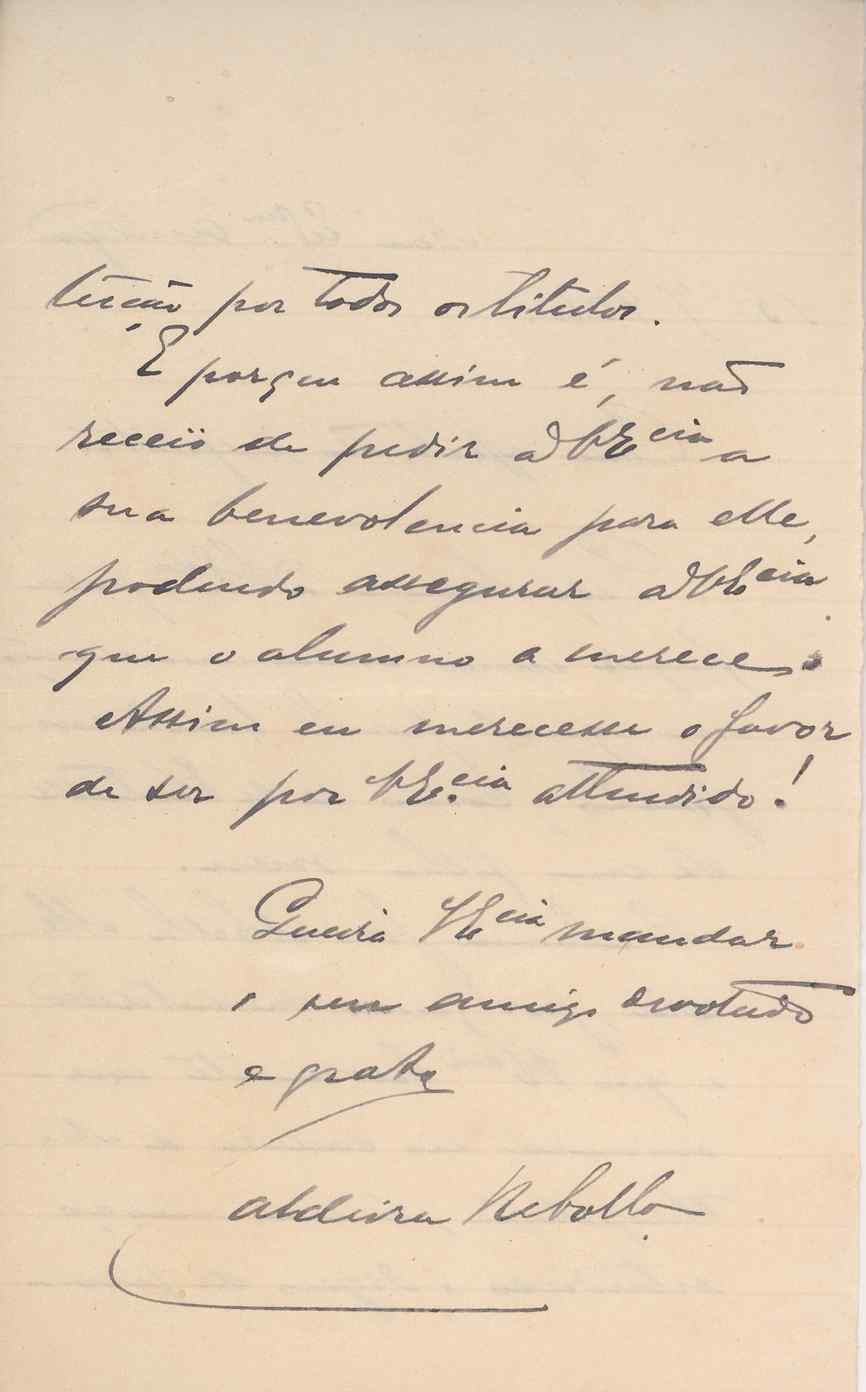 tuição por todos os titulos.
E porque assim é, não
receio de pedir a V. Ex.cia a
sua benevolencia para elle,
podendo assegurar a V. Ex.cia
que o alumno a merece.
Assim eu merecesse o favor
de ser por V. Ex.cia attendido!
Queira V. Ex.cia mandar
o seu amigo devotado
e grato
Rebello